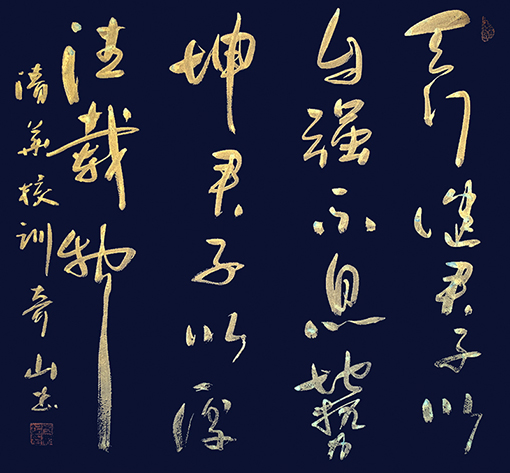 天行健君子以
自强不息地势
坤君子以厚
德載物
清華校训奇山书